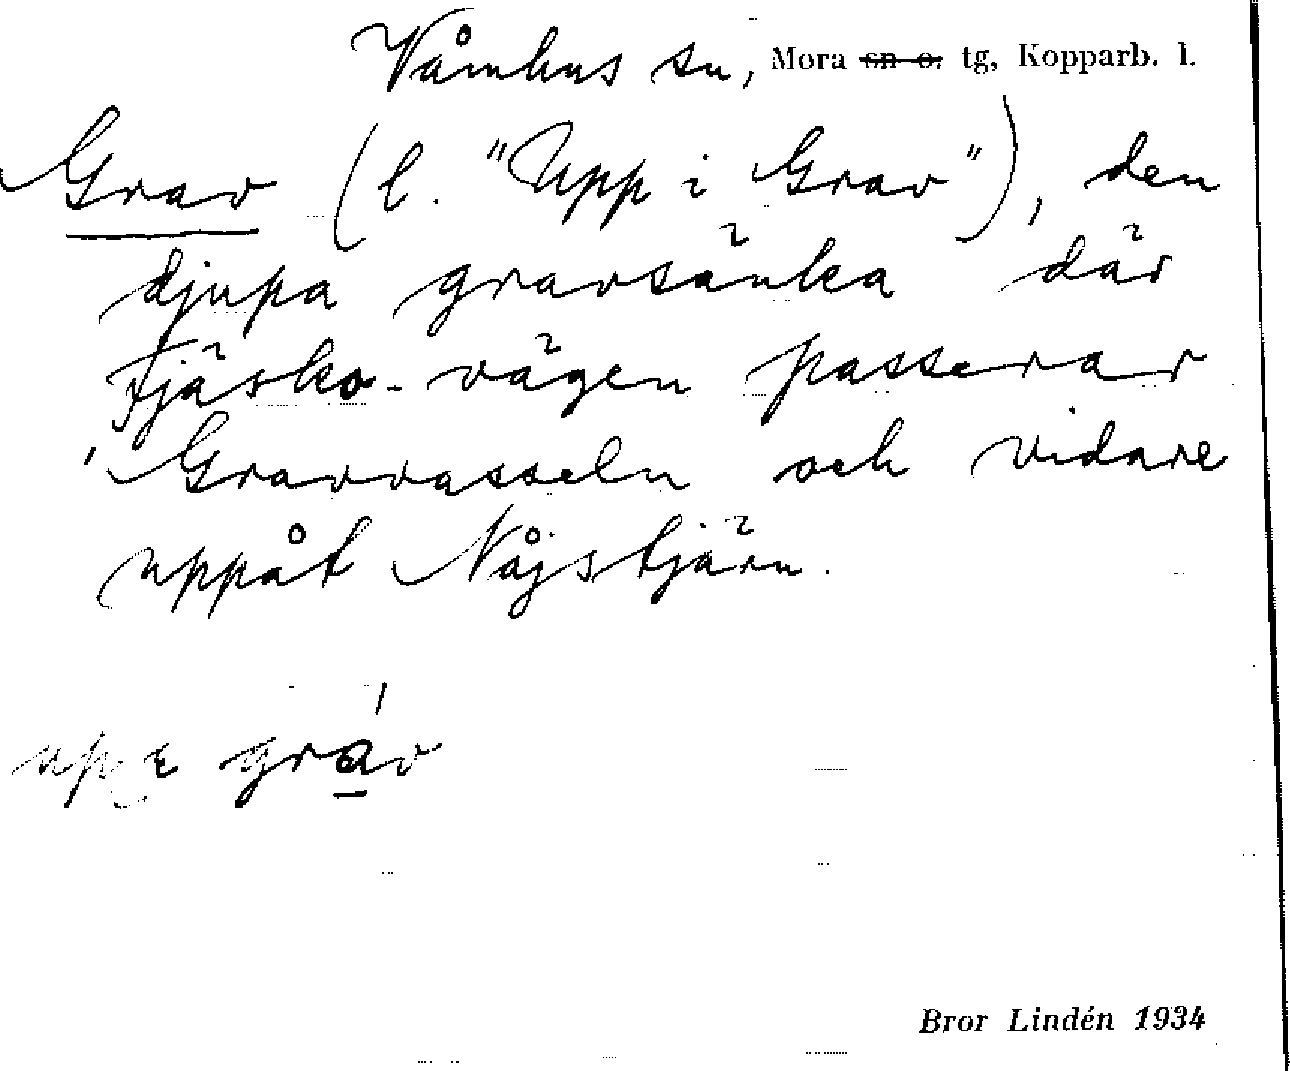 Våmhus sn, Mora sn o. tg, Kopparb. l.
Grav (l. "Upp i Grav"), den
djupa gravsänka där
Fjäsko-vägen passerar
Gravvasseln och vidare
uppåt Nåjstjärn.
up ɩ gráv
Bror Lindén 1934